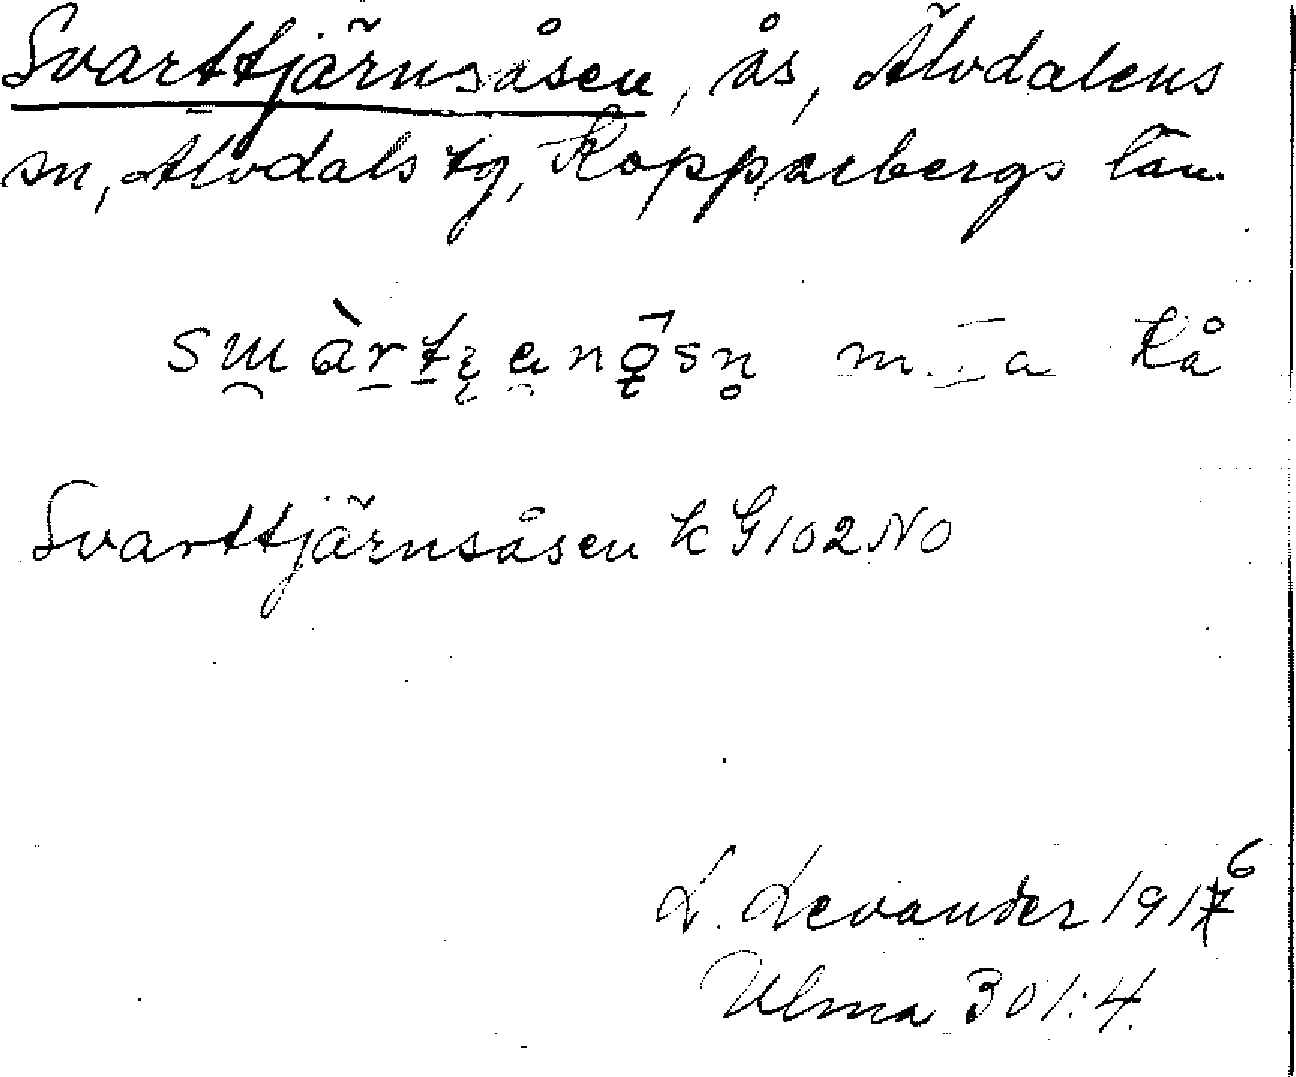 Svarttjärnsåsen, ås, Älvdalens
sn, Älvdals tg, Kopparbergs län.
m. Kå
Svarttjärnsåsen k G102NO
L. Levander 1916
Ulma 301:4.